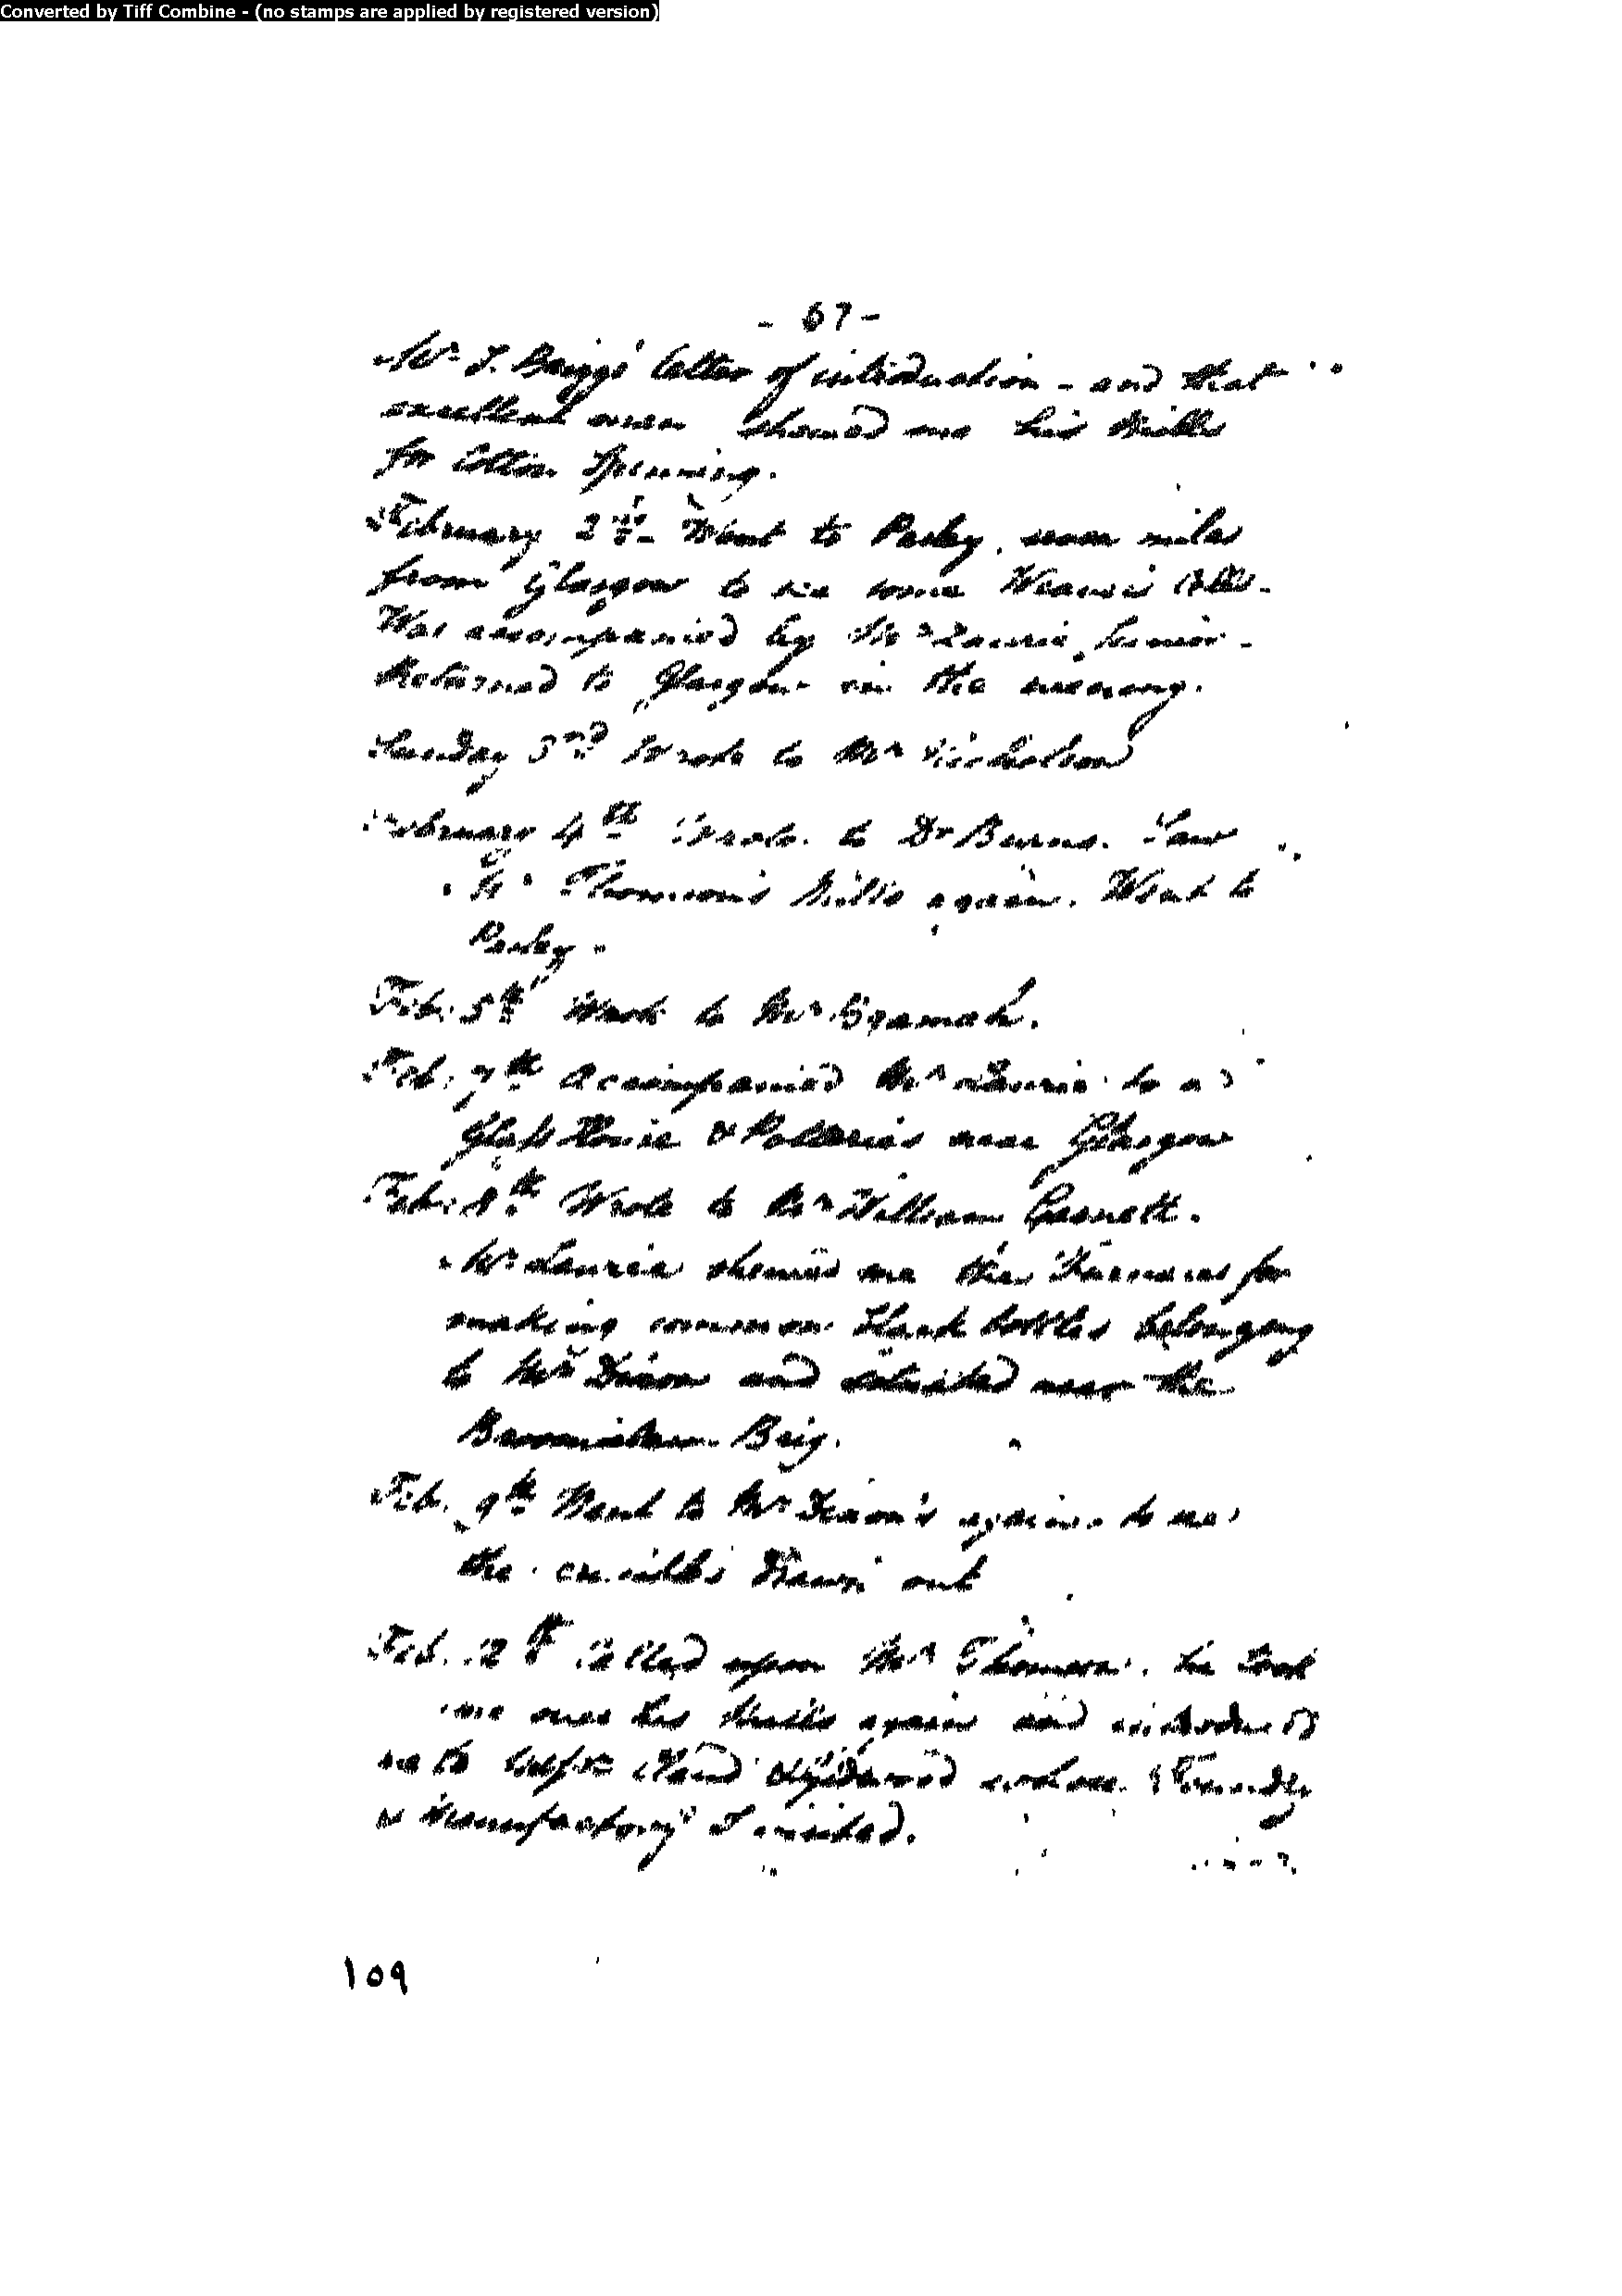 Converted by Tiff Combine - (no stamps are applied by registered version)
- 67 -
Mr J. Briggs' letter of introduction - and that
excellent man showed me his Mills
for Cotton Spinning.
February 2nd - Went to Pasley, seven miles
from Glasgow to see some Weaver's
Was accompanied by Mr Laurie, Junior -
Returned to Glasgow in the evening.
Sunday 3rd Wrote to Mr Nicholson
February 4th Wrote to Dr Burns. Saw
Mr Thomson's Mills again. Went to
Pasley -
Feb. 5th Wrote to Mr Bramah.
Feb. 7th Accompanied Mr Laurie to a
Glass House & Potteries near Glasgow
Feb. 8th Wrote to Mr William Garnett.
Mr Laurie showed me the Furnaces for
making common black bottles belonging
to Mr Dixon and situated near the
Broomielaw Brig.
Feb. 9th Went to Mr Dixon's again to see
the crucibles drawn out
Feb. 12th Called upon Mr Thomson. he took
me over his Mills again and introduced
me to whose Foundry
& Manufactory I visited.
109